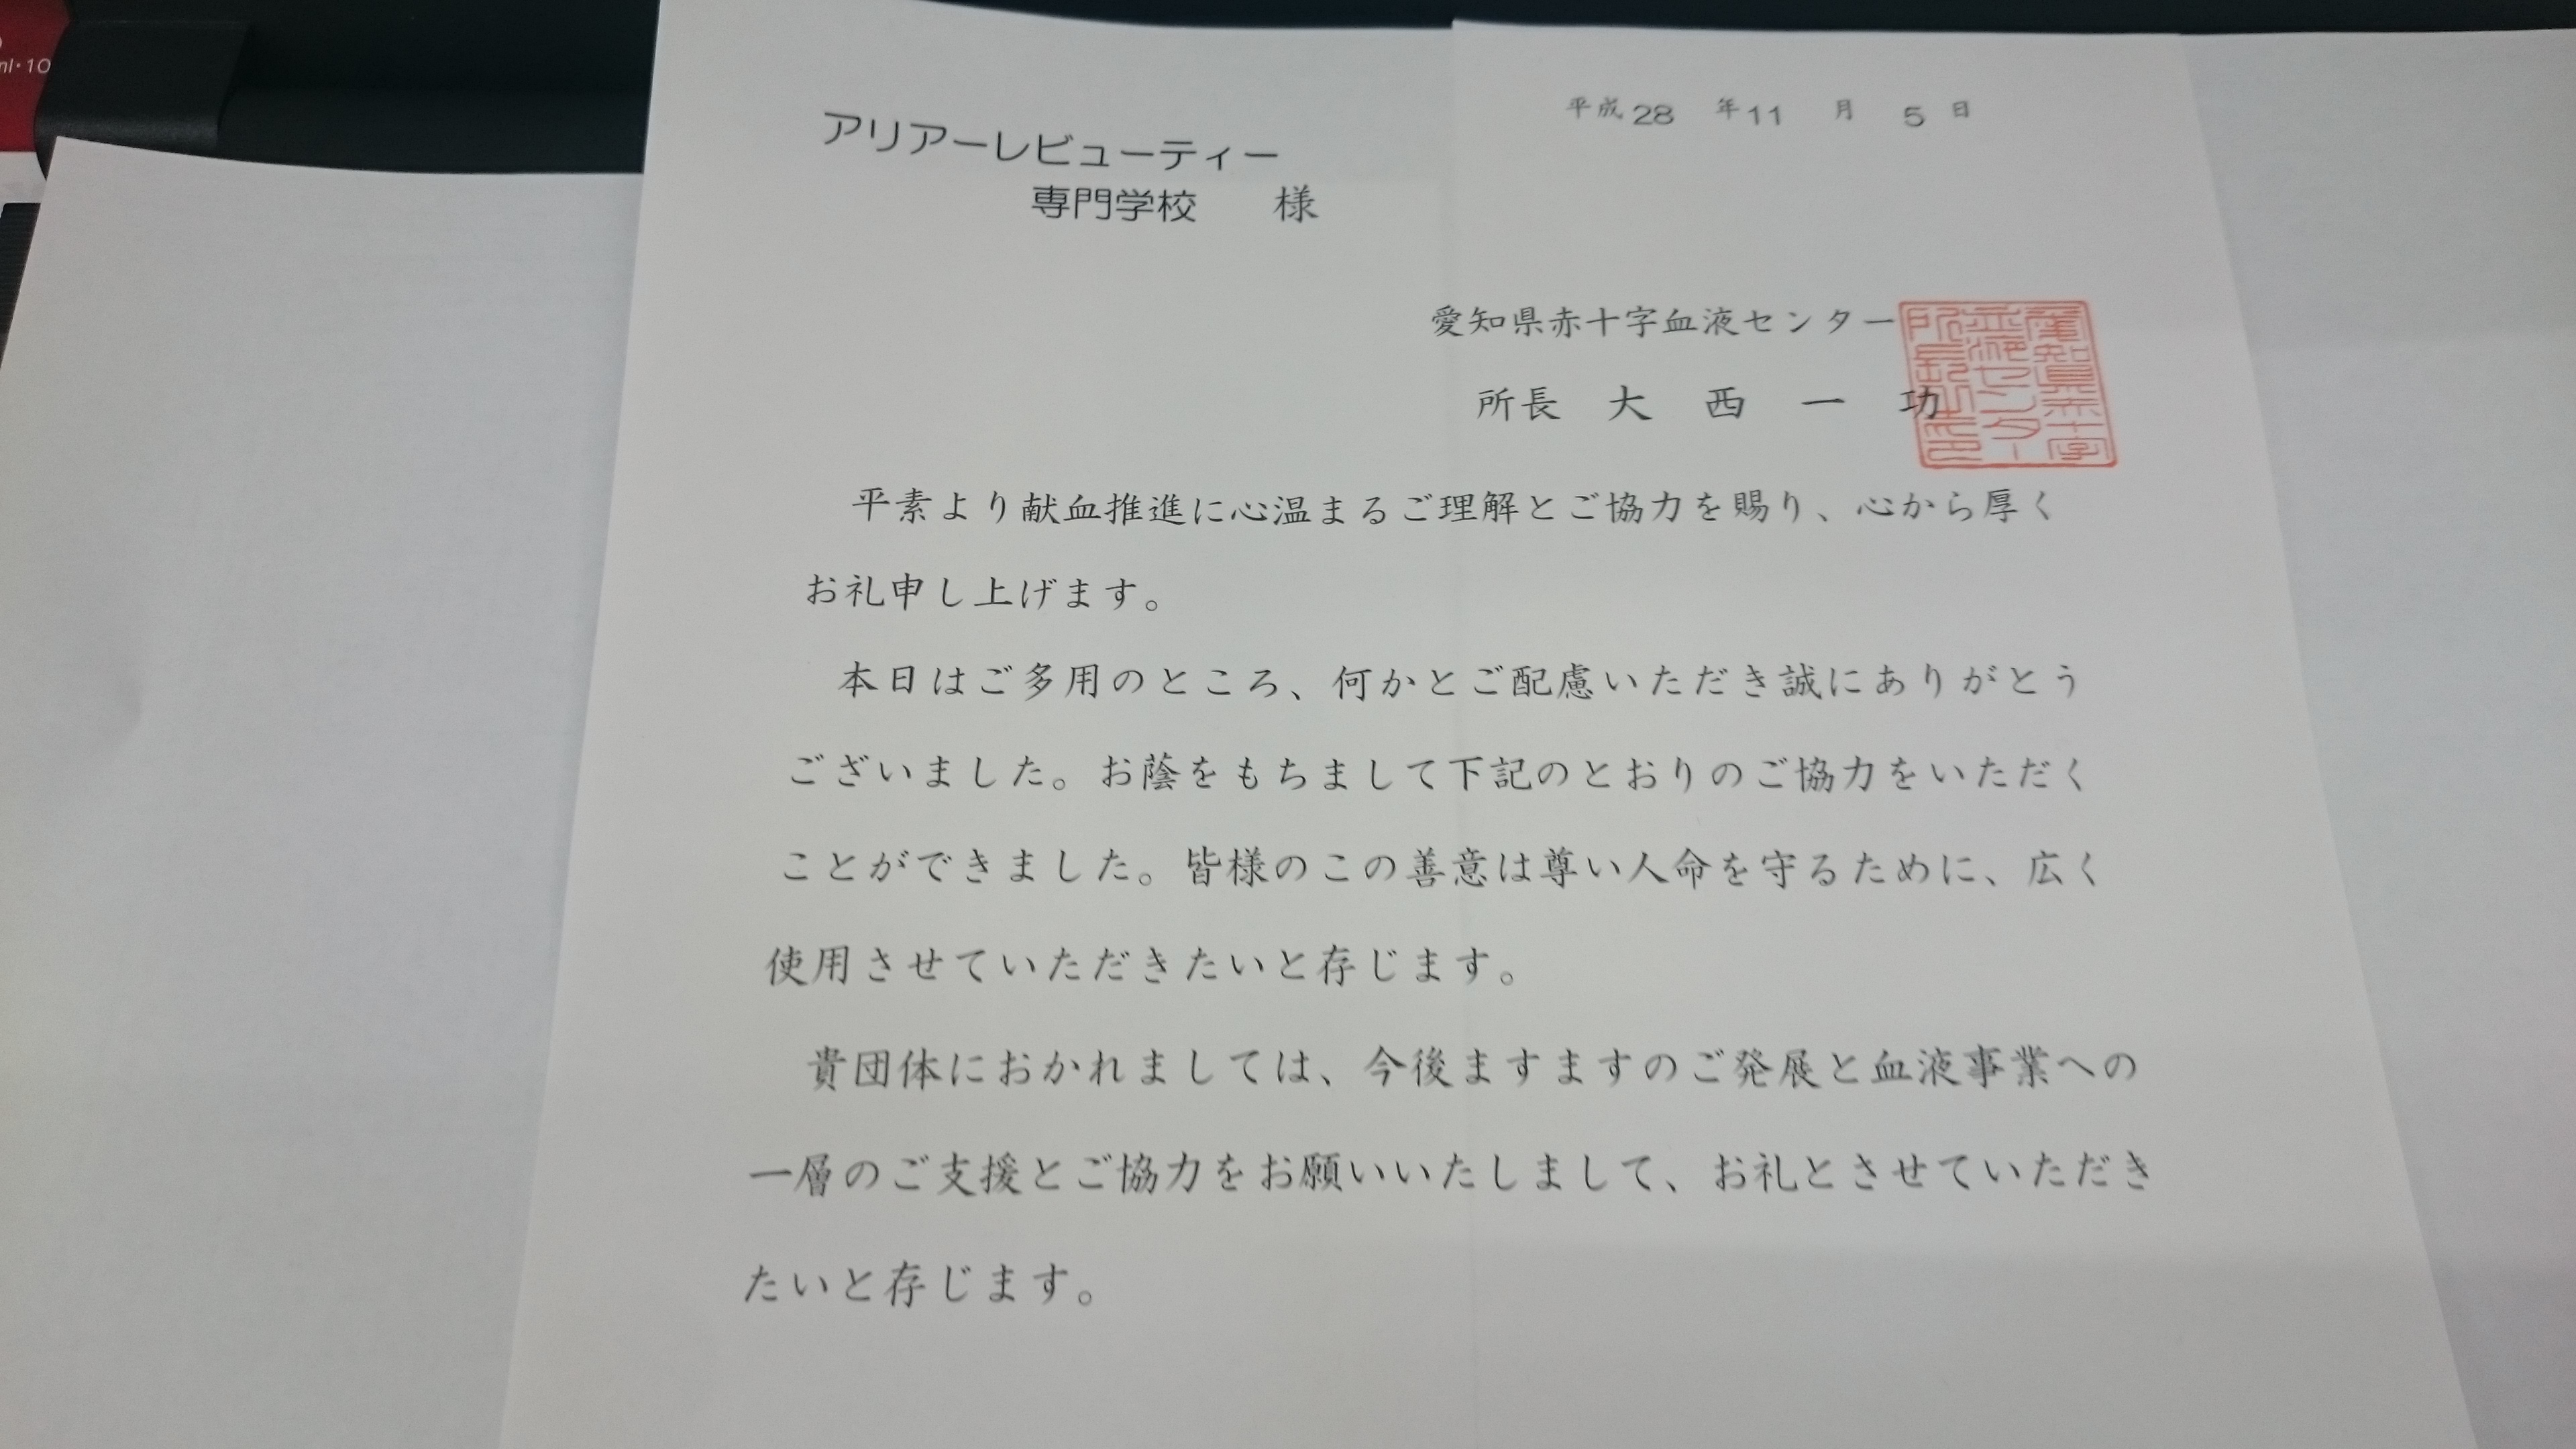 ml・10
平成28年11月5日
アリアーレビューティー
専門学校 様
愛知県赤十字血液センター
所長 大西一功
愛知県赤十字
血液センター
所長之印
平素より献血推進に心温まるご理解とご協力を賜り、心から厚く
お礼申し上げます。
本日はご多用のところ、何かとご配慮いただき誠にありがとう
ございました。お蔭をもちまして下記のとおりのご協力をいただく
ことができました。皆様のこの善意は尊い人命を守るために、広く
使用させていただきたいと存じます。
貴団体におかれましては、今後ますますのご発展と血液事業への
一層のご支援とご協力をお願いいたしまして、お礼とさせていただき
たいと存じます。